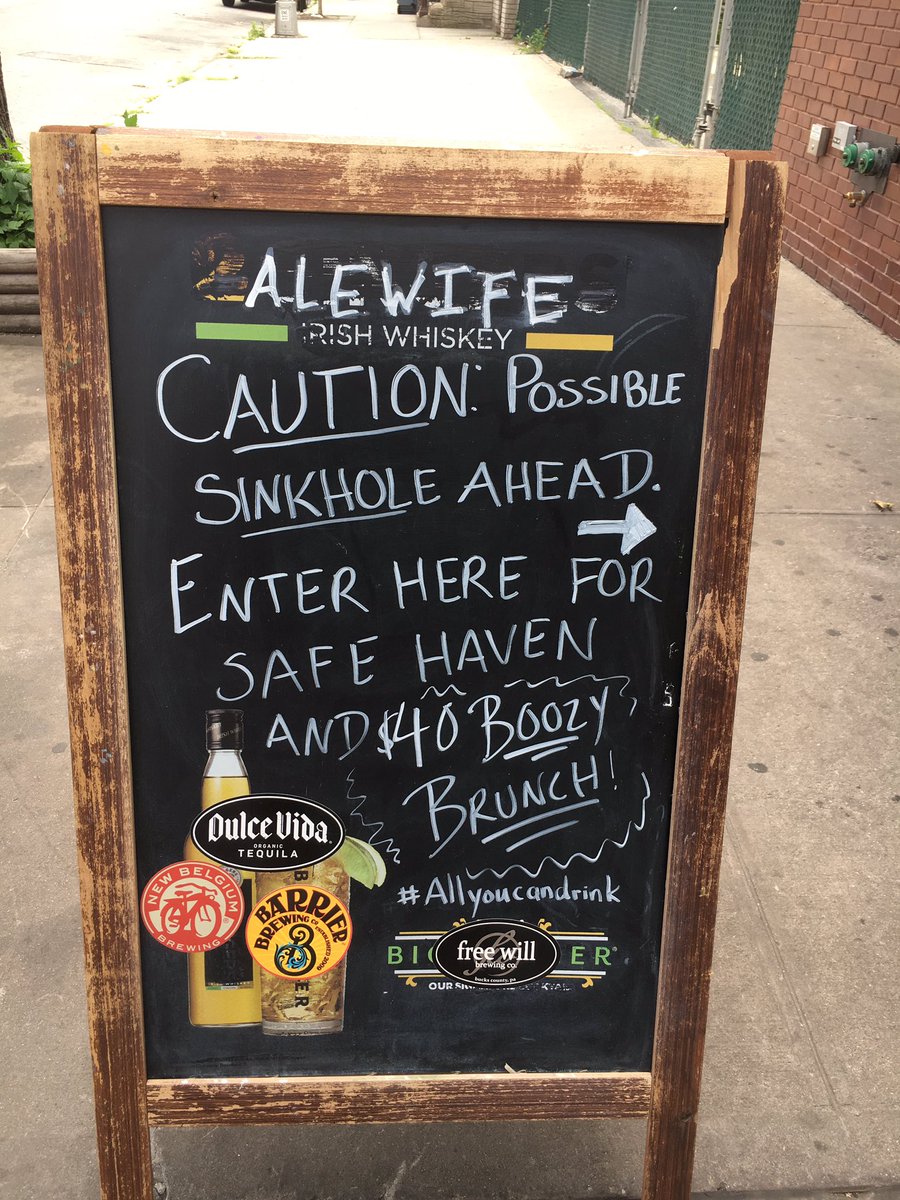 ALEWIFE
IRISH WHISKEY
CAUTION: POSSIBLE
SINKHOLE AHEAD.
ENTER HERE FOR
SAFE HAVEN
AND $40 BOOZY
BRUNCH!
#Allyoucandrink
Dulce Vida
ORGANIC
TEQUILA
NEW BELGIUM
BREWING
BARRIER
BREWING CO
free will
brewing co.
bucks county, pa
BIG ER
OUR